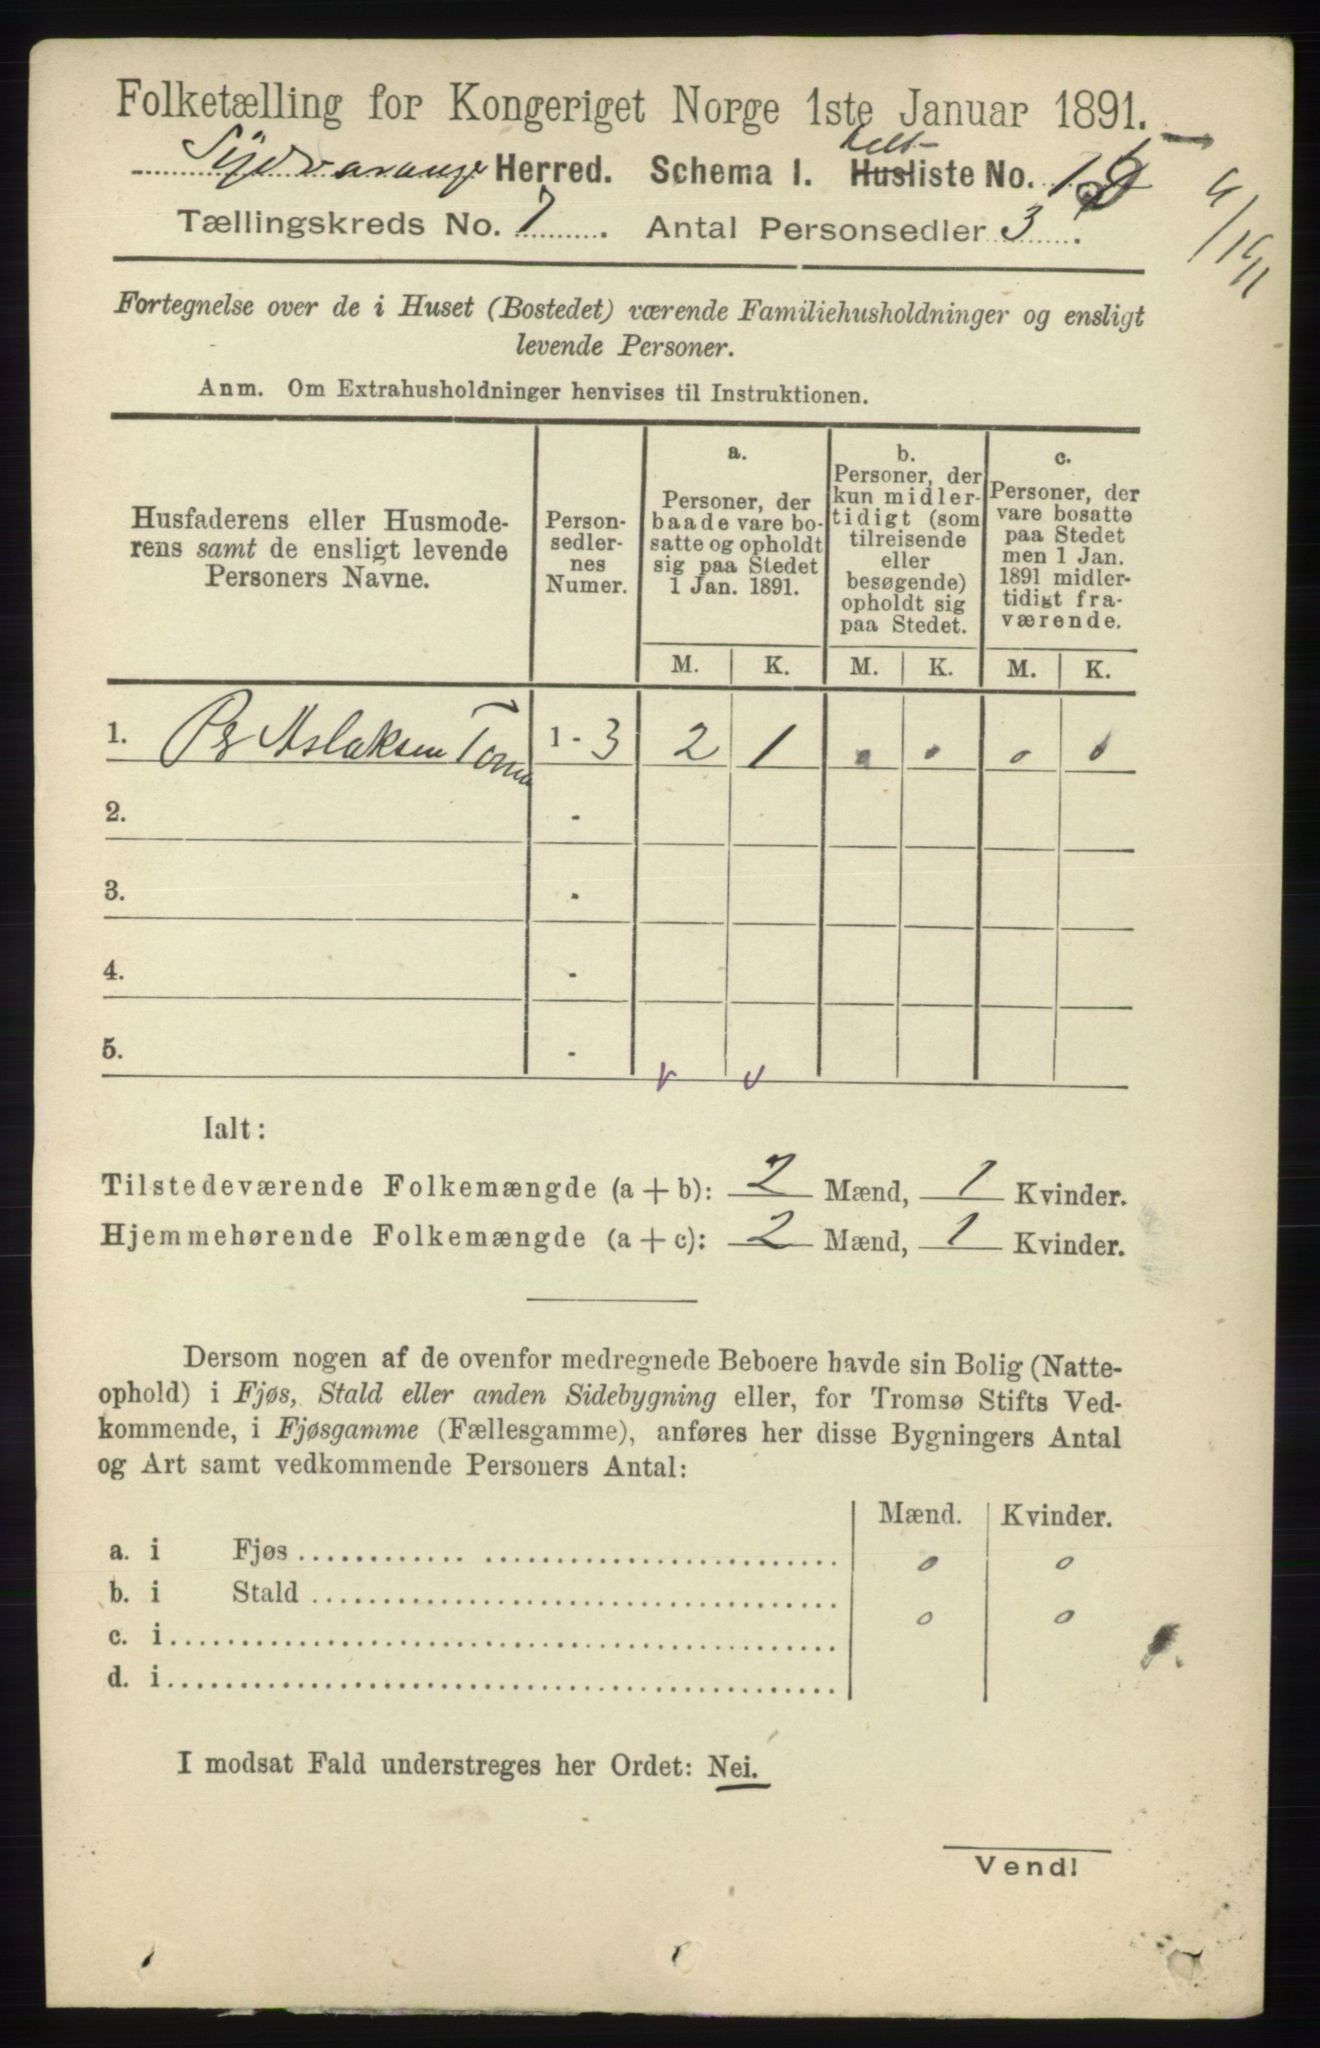 Folketælling for Kongeriget Norge 1ste Januar 1891.
Sydvaranger Herred. Schema I. Husliste No.
Tællingskreds No. 7. Antal Personsedler 3.
Fortegnelse over de i Huset (Bostedet) værende Familiehusholdninger og ensligt
levende Personer.
Anm. Om Extrahusholdninger henvises til Instruktionen.
Husfaderens eller Husmode-
rens samt de ensligt levende
Personers Navne.
Person-
sedler-
nes
Numer.
a.
Personer, der
baade vare bo-
satte og opholdt
sig paa Stedet
1 Jan. 1891.
b.
Personer, der
kun midler-
tidigt (som
tilreisende
eller
besøgende)
opholdt sig
paa Stedet.
c.
Personer, der
vare bosatte
paa Stedet
men 1 Jan.
1891 midler-
tidigt fra-
værende.
M. K. M. K. M. K.
1. Per Aslaksen 1 - 3 2 1 0 0 0 0
2. -
3. -
4. -
5. -
Ialt:
Tilstedeværende Folkemængde (a + b): 2 Mænd, 1 Kvinder.
Hjemmehørende Folkemængde (a + c): 2 Mænd, 1 Kvinder.
Dersom nogen af de ovenfor medregnede Beboere havde sin Bolig (Natte-
ophold) i Fjøs, Stald eller anden Sidebygning eller, for Tromsø Stifts Ved-
kommende, i Fjøsgamme (Fællesgamme), anføres her disse Bygningers Antal
og Art samt vedkommende Personers Antal:
Mænd. Kvinder.
a. i Fjøs 0 0
b. i Stald 0 0
c. i
d. i
I modsat Fald understreges her Ordet: Nei.
Vend!